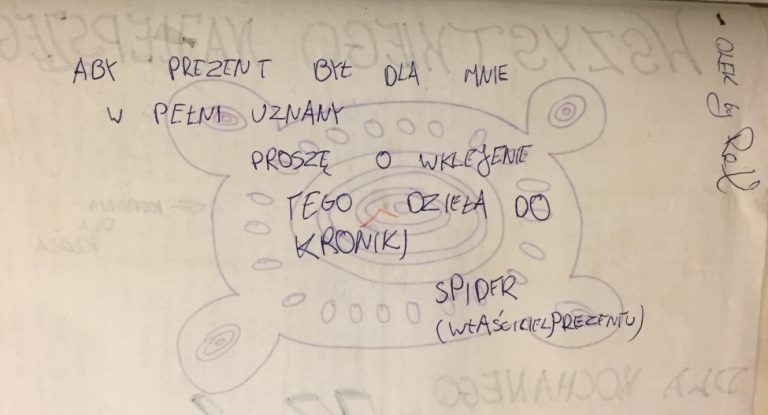 ABY PREZENT BYŁ DLA MNIE
W PEŁNI UZNANY
PROSZĘ O WKLEJENIE
TEGO DZIEŁA DO
KRONIKI
SPIDER
(WŁAŚCICIEL PREZENTU)
- OLEK by
WSZYSTKIEGO NAJLEPSZEG
KORONA
DLA
KRÓLA
DLA KOCHANEGO